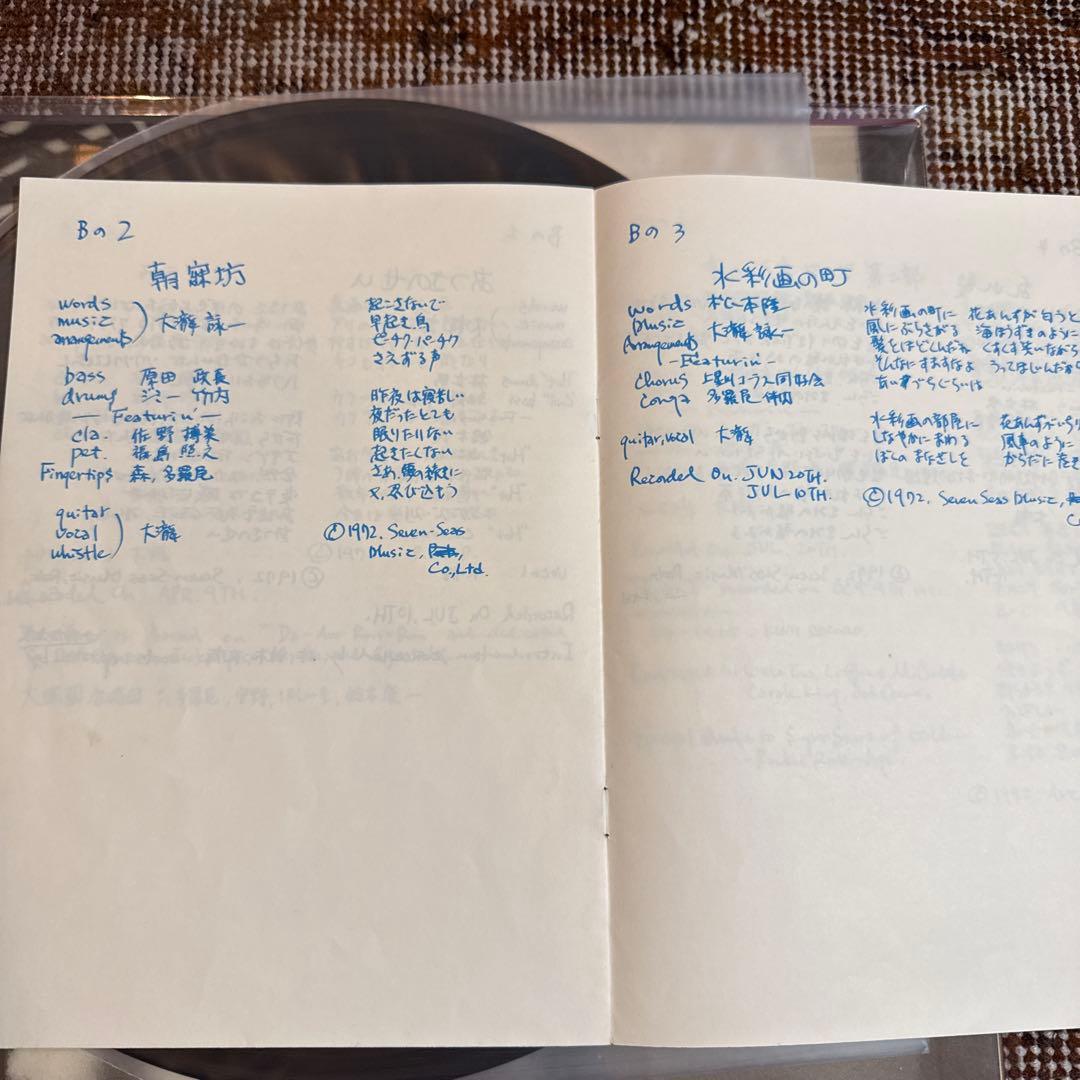 Bの2
朝寝坊
words
music
arrangements
大瀧 詠一
bass 原田 政長
drums ジミー 竹内
— Featurin' —
cla. 佐野 博美
pet. 福島 照之
Fingertips 森, 多羅尾
guitar
vocal
whistle
大瀧
起こさないで
早起き鳥
ピーチク パーチク
さえずる声
昨夜は寝苦しい
夜だったとても
眠りたりない
起きたくない
さあ、夢の続きに
又、忍び込もう
©1972. Seven-Seas
Music,
Co., Ltd.
Bの3
水彩画の町
words 松本 隆
music
Arrangements
大瀧 詠一
— Featurin' —
chorus 上星川コーラス同好会
conga 多羅尾 伴内
guitar, vocal 大瀧
Recorded On. JUN 20TH.
JUL 10TH.
水彩画の町に
風にぶらさがる
髪をほどくんだね
そんなにすますなよ
水彩画の部屋に
しなやかにまわる
ぼくの まなざしを
花あんずが匂うと
海ほうずきのように
くすくす笑いながら
うってはじんだから
花あんずがいちり
風車のように
からだに巻き
©1972. Seven Seas Music,